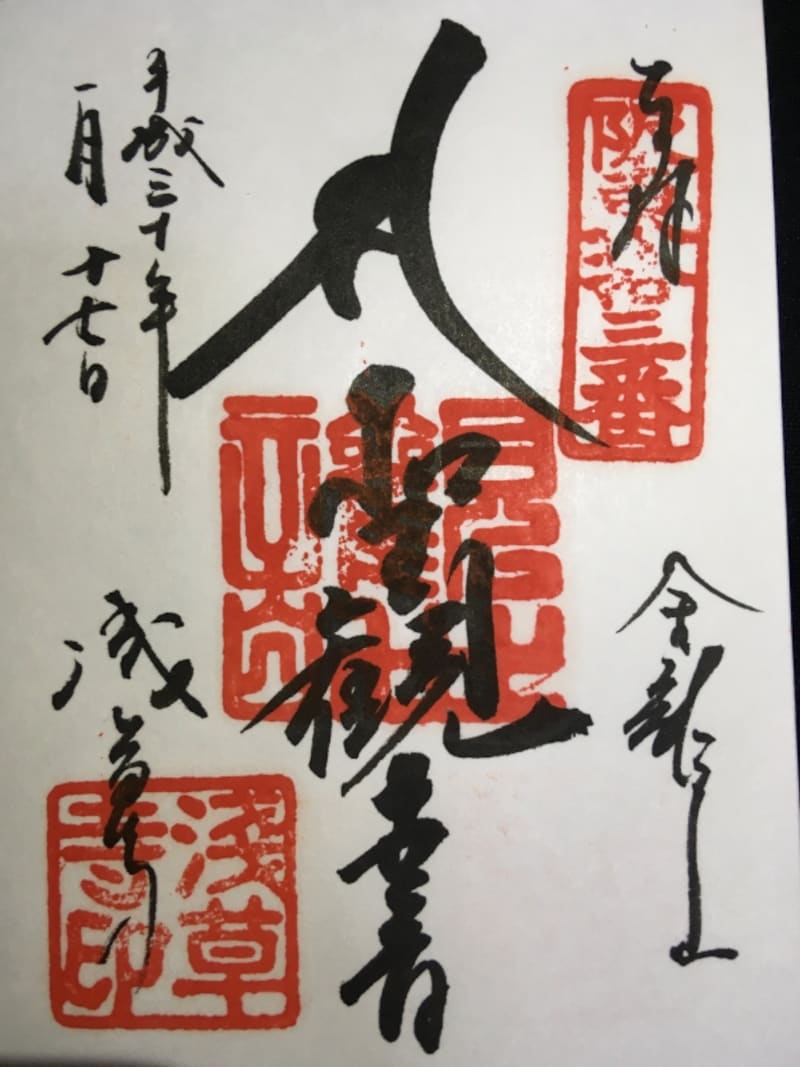 奉拝
阪東拾三番
金龍山
聖観世音
観音
平成三十年
一月十七日
浅草寺
浅草
寺印